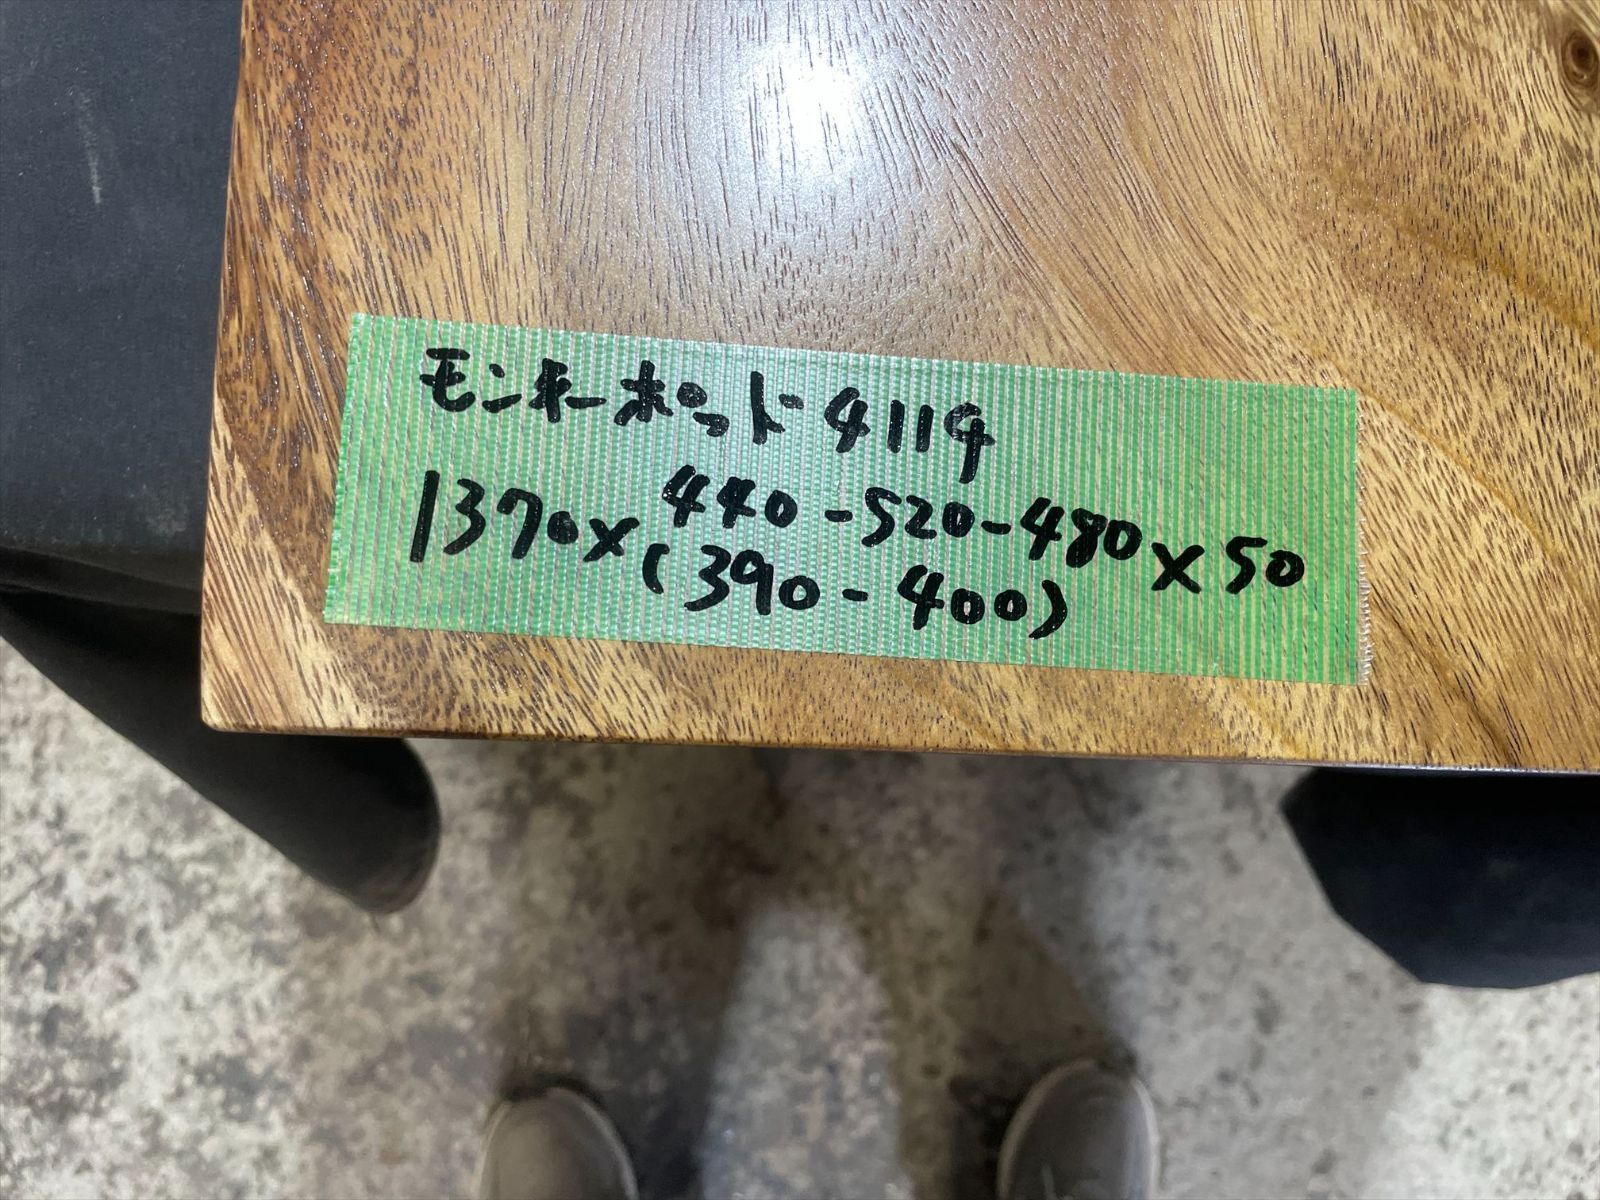 モンキーポット4114
1370×440-520-480×50
(390-400)